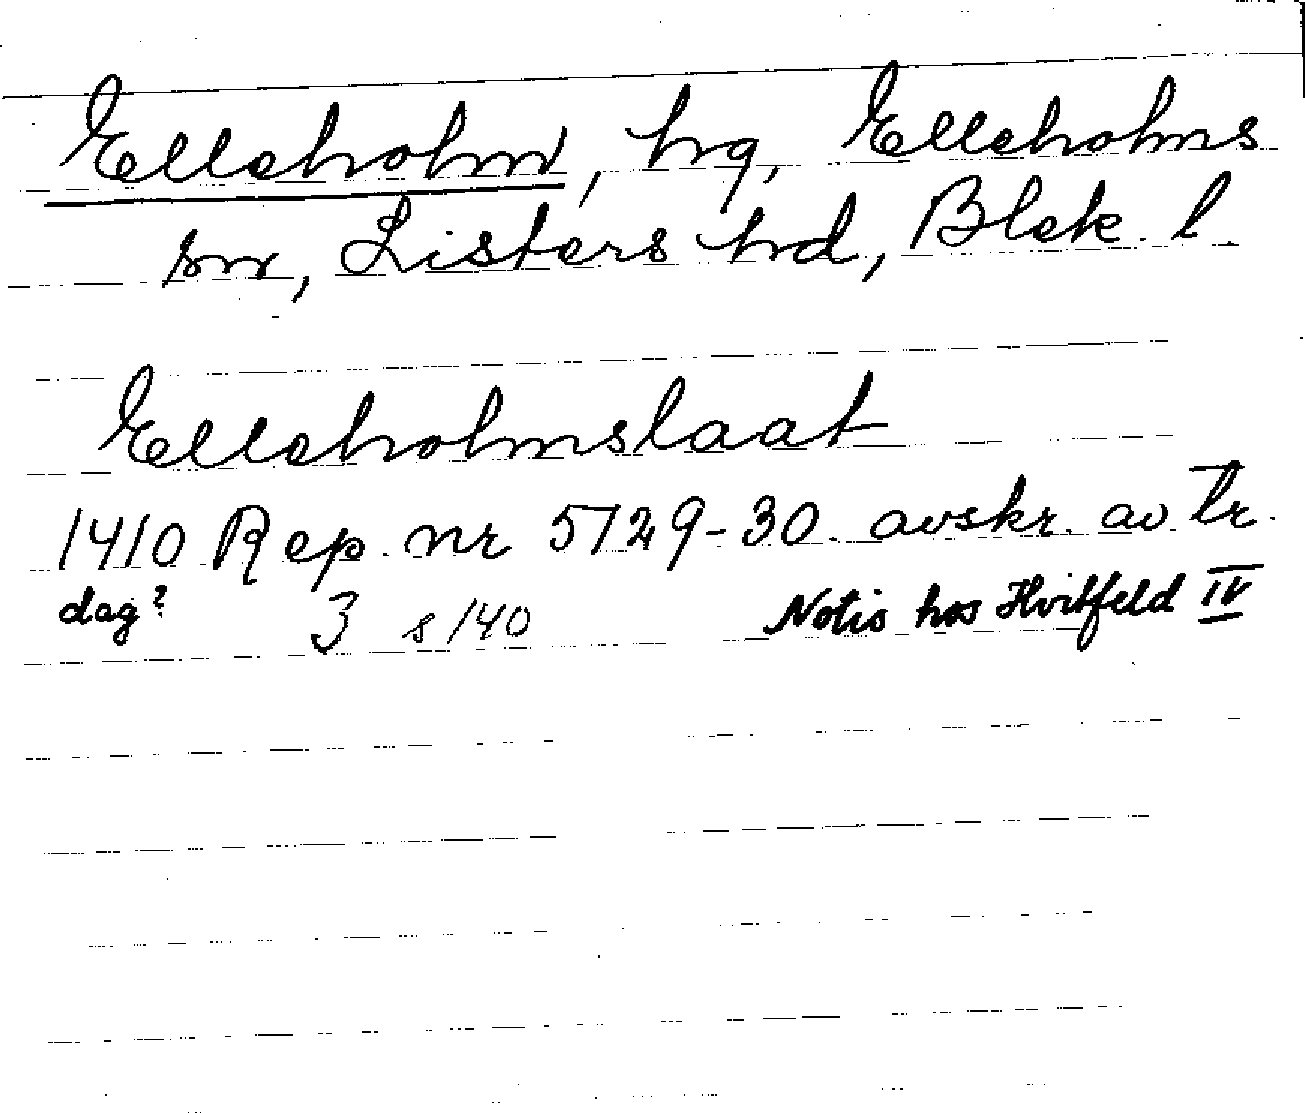 Elleholm, hg, Elleholms
sn, Listers hd, Blek. l.
Elleholmslaat
1410 Rep. nr 5729-30. avskr. av Tr.
dag? 3 s 140 Notis hos Hvitfeld IV